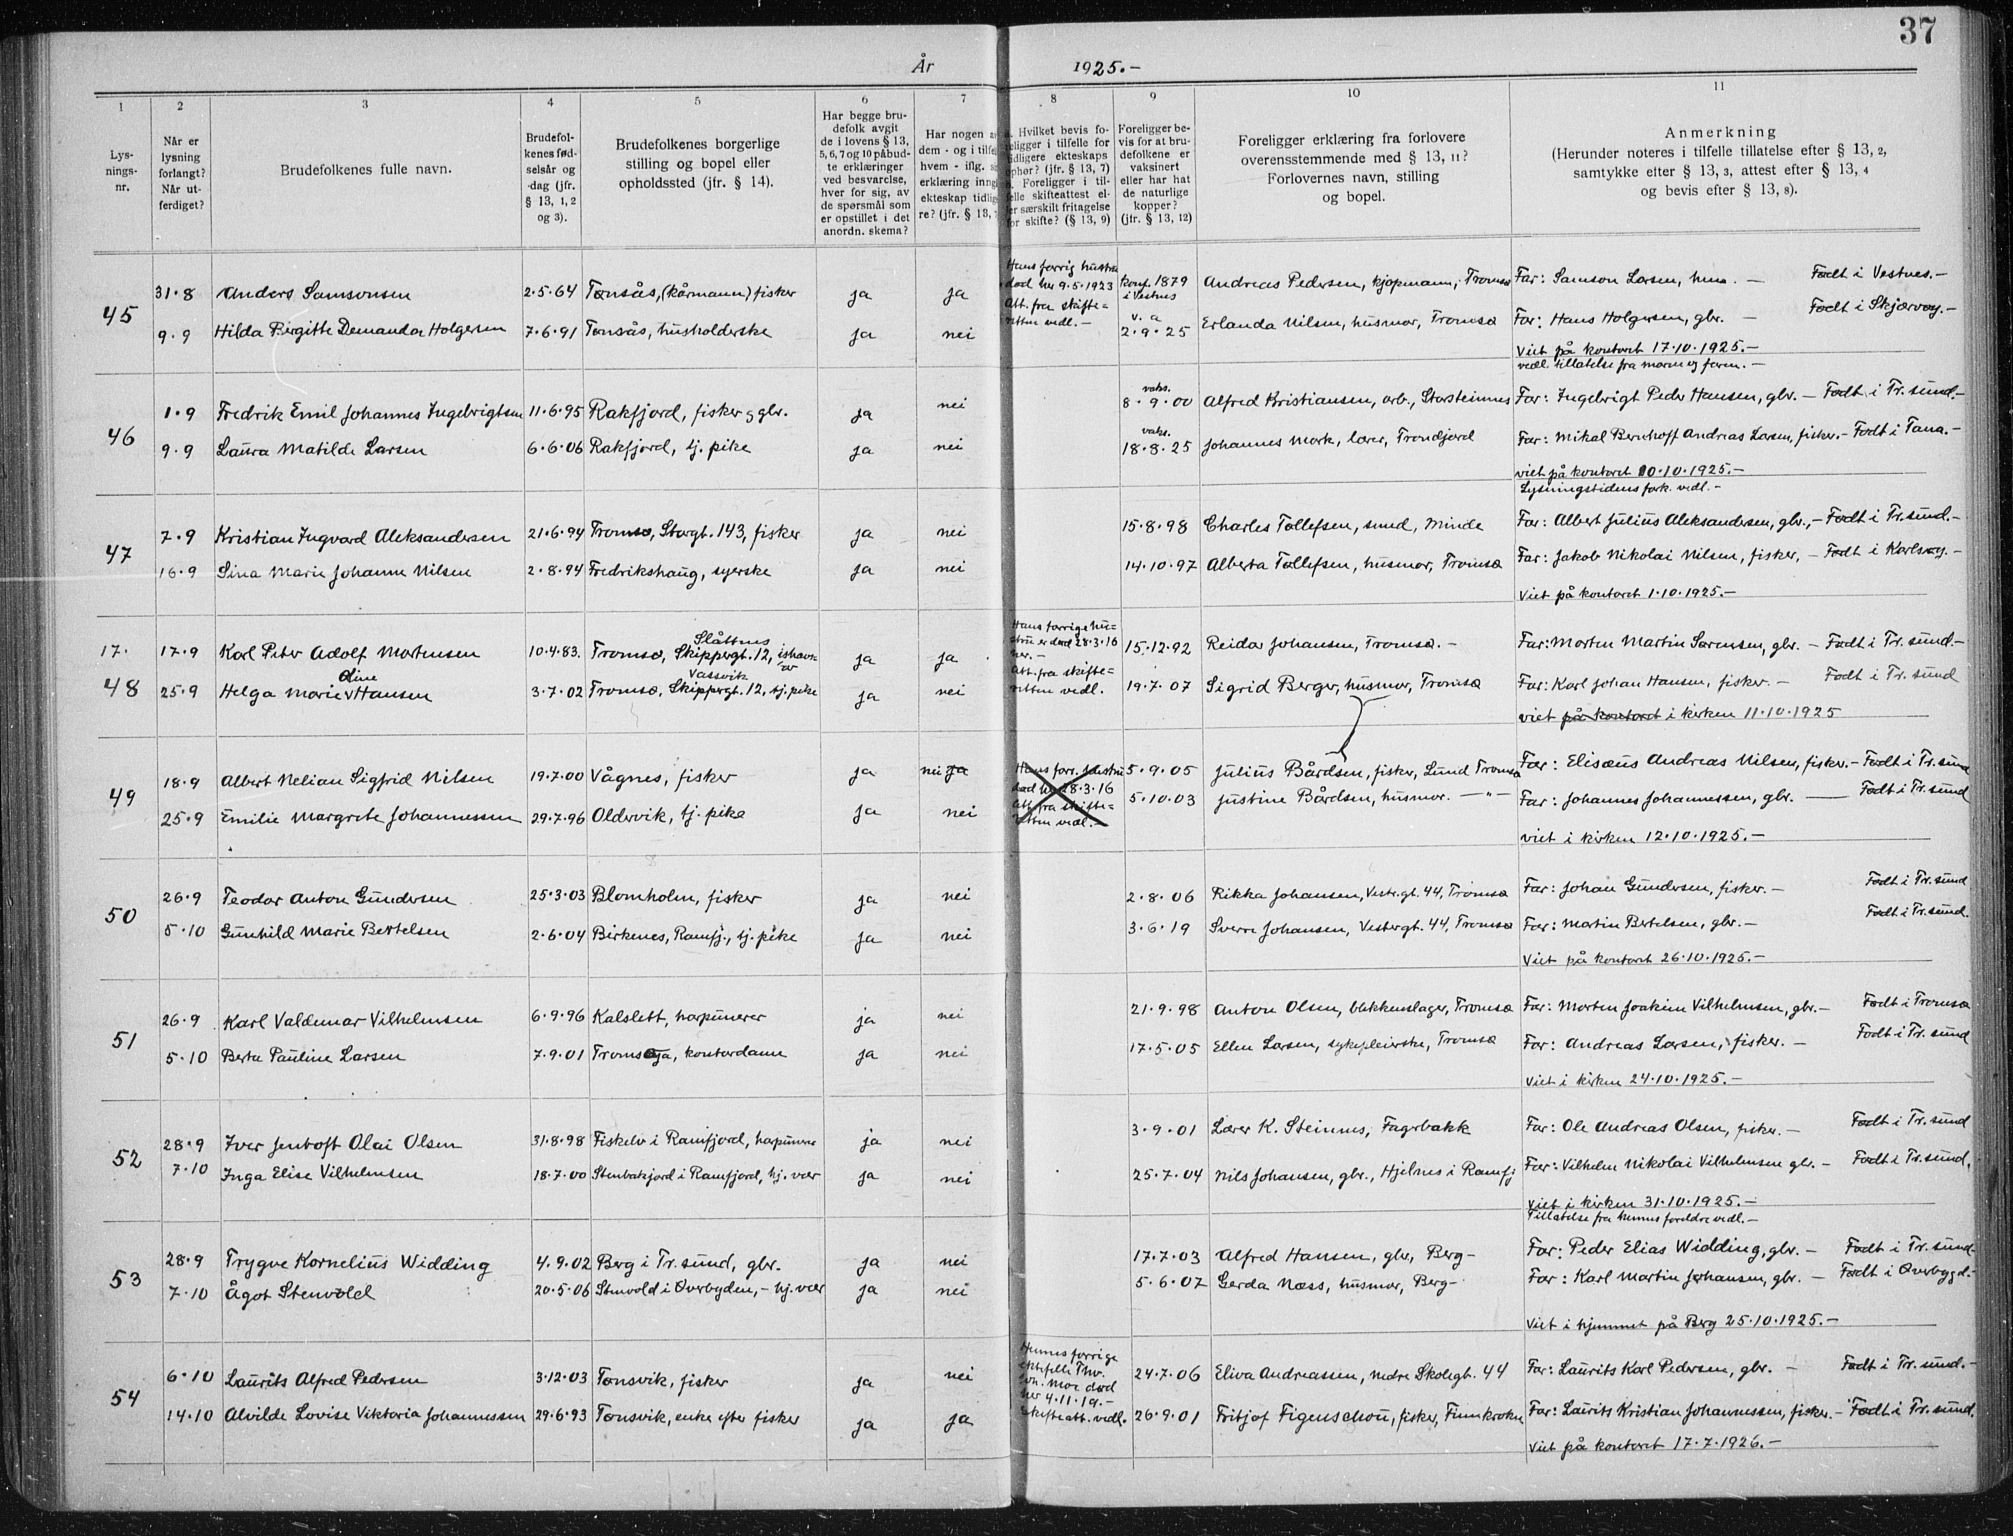 37
År 1925.-
1 2 3 4 5 6 7 8 9 10 11
Lys-
nings-
nr.
Når er
lysning
forlangt?
Når ut-
ferdiget?
Brudefolkenes fulle navn.
Brudefol-
kenes fød-
selsår og
-dag (jfr.
§ 13, 1, 2
og 3).
Brudefolkenes borgerlige
stilling og bopel eller
opholdssted (jfr. § 14).
Har begge bru-
defolk avgit
de i lovens § 13,
5, 6, 7 og 10 påbud-
te erklæringer
ved besvarelse,
hver for sig, av
de spørsmål som
er opstillet i det
anordn. skema?
Har nogen a
dem - og i tilfe
hvem - iflg. s
erklæring inng
ekteskap tidlig
re? (jfr. § 13,
Hvilket bevis fo-
religger i tilfelle for
tidligere ekteskaps
ophør? (jfr. § 13, 7)
Foreligger i til-
felle skifteattest el-
er særskilt fritagelse
for skifte? (§ 13, 9)
Foreligger be-
vis for at bru-
defolkene er
vaksinert
eller har hat
de naturlige
kopper?
(jfr. § 13, 12)
Foreligger erklæring fra forlovere
overensstemmende med § 13, 11?
Forlovernes navn, stilling
og bopel.
Anmerkning
(Herunder noteres i tilfelle tillatelse efter § 13, 2,
samtykke efter § 13, 3, attest efter § 13, 4
og bevis efter § 13, 8).
45
31·8 Anders Samsonsen 2·5·64 Tønsås, (kårmann) fisker ja ja
Hans forrig hustru
død her 9.5.1923
Att. fra skifte-
retten vedl.-
konf. 1879
i Vestnes
Andreas Pedersen, kjøpmann, Tromsø Far: Samson Larsen, hmn. - Født i Vestnes.-
9·9 Hilda Birgitte Demanda Holgersen 7·6·91 Tønsås, husholderske ja nei v. a 2·9·25 Erlanda Nilsen, husmor, Tromsø Far: Hans Holgersen, gbr. - Født i Skjærvøy.-
Viet på kontoret 17·10·1925.-
vedl. tillatelse fra moren og faren.-
46
1·9 Fredrik Emil Johannes Ingebrigtsen 11·6·95 Rakfjord, fisker og gbr. ja nei vaks. 8·9·00 Alfred Kristiansen, arb., Storsteinnes Far: Ingebrigt Peder Hansen, gbr. - Født i Tr.sund.-
9·9 Laura Matilde Larsen 6·6·06 Rakfjord, tj. pike ja nei vaks. 18·8·25 Johannes Mork, lærer, Trondjord Far: Mikal Bernhoff Andreas Larsen, fisker.- Født i Tana.-
viet på kontoret 10·10·1925.-
Lysningstidens fork. vedl.-
47
7·9 Kristian Ingvard Aleksandersen 21·6·94 Tromsø, Storgt. 143, fisker ja nei 15·8·98 Charles Tollefsen, smed, Minde Far: Albert Julius Aleksandersen, gbr.,- Født i Tr.sund.-
16·9 Sina Marie Johanne Nilsen 2·8·94 Fredrikshaug, syerske ja nei 14·10·97 Alberta Tollefsen, husmor, Tromsø Far: Jakob Nikolai Nilsen, fisker,- Født i Karlsøy.-
Viet på kontoret 1·10·1925.-
17.
48
17·9 Karl Peter Adolf Mortensen 10·4·83. Tromsø, Skippergt. 12, ishavs- Slåttnes ja ja
Hans forrige hu-
stru er død 28·3·16
her.-
Att. fra skifte-
retten vedl.
15·12·92 Reidar Johansen, Tromsø.- Far: Morten Martin Sørensen, gbr. - Født i Tr.sund.-
25·9 Helga Marie Oline Hansen 3·7·02 Tromsø, Skippergt. 12, tj. pike Vassvik ja nei 19·7·07 Sigrid Berger, husmor, Tromsø Far: Karl Johan Hansen, fisker.- Født i Tr.sund
viet på kontoret i kirken 11·10·1925
49
18·9 Albert Nelian Sigfrid Nilsen 19·7·00 Vågnes, fisker ja nei ja
Hans forr. hustru
død her 28·3·16
Att. fra skifte-
retten vedl.-
5·9·05 Julius Bårdsen, fisker, Lund Tromsø Far: Elisæus Andreas Nilsen, fisker.- Født i Tr.sund
25·9 Emilie Margrete Johannessen 29·7·96 Oldervik, tj. pike ja nei 5·10·03 Justine Bårdsen, husmor. -"- Far: Johannes Johannessen, gbr. - Født i Tr.sund
viet i kirken 12·10·1925.-
50
26·9 Teodor Anton Gundersen 25·3·03 Blomholm, fisker ja nei 2·8·06 Rikka Johansen, Vestergt. 44, Tromsø Far: Johan Gundersen, fisker.- Født i Tr.sund
5·10 Gunhild Marie Bertelsen 2·6·04 Birkenes, Ramfj., tj. pike ja nei 3·6·19 Sverre Johansen, Vestergt. 44, Tromsø Far: Martin Bertelsen, gbr.- Født i Tr.sund.
Viet på kontoret 26·10·1925.-
51
26·9 Karl Valdemar Vilhelmsen 6·9·96 Kalslett, harpunerer ja nei 21·9·98 Anton Olsen, blikkenslager, Tromsø Far: Morten Joakim Vilhelmsen, gbr.- Født i Tromsø
5·10 Berta Pauline Larsen 7·9·01 Tromsøya, kontordame ja nei 17·5·05 Ellen Larsen, sykepleierske, Tromsø Far: Andreas Larsen, fisker.- Født i Tr.sund
Viet i kirken 24·10·1925.-
52
28·9 Iver Jentoft Olai Olsen 31·8·98 Fiskelv i Ramfjord, harpunerer ja nei 3·9·01 Lærer K. Steinnes, Fagrbakk Far: Ole Andreas Olsen, fisker.- Født i Tr.sund
7·10 Inga Elise Vilhelmsen 18·7·00 Stenbakjord i Ramfjord, hj. vær ja nei 25·7·04 Nils Johansen, gbr., Hjelnes i Ramfj Far: Vilhelm Nikolai Vilhelmsen gbr.- Født i Tr.sund.
Viet i kirken 31·10·1925.-
Tillatelse fra hennes foreldre vedl.-
53
28·9 Trygve Kornelius Widding 4·9·02 Berg i Tr.sund, gbr. ja nei 17·7·03 Alfred Hansen, gbr, Berg- Far: Peder Elias Widding, gbr.- Født i Tr.sund-
7·10 Ågot Stenvold 20·5·06 Stenvold i Øverbyden,- hj. vær ja nei 5·6·07 Gerda Næss, husmor, Berg- Far: Karl Martin Johansen, gbr.- Født i Øverbygd.-
Viet i hjemmet på Berg 25·10·1925.-
54
6·10 Laurits Alfred Pedersen 3·12·03 Tønsvik, fisker ja nei
Hennes forrige
ektefelle Thv.
Moe død
her 4·11·19.-
Skifteatt. vedl.
24·7·06 Eliva Andreassen, nedre Skolegt. 44 Far: Laurits Karl Pedersen, gbr. - Født i Tr.sund.-
14·10 Alvilde Lovise Viktoria Johannessen 29·6·93 Tønsvik, enke efter fisker ja ja 26·9·01 Fritjof Figenschou, fisker, Finnkroken Far: Laurits Kristian Johannessen, fisker.- Født i Tr.sund.
Viet på kontoret 17·7·1926.-